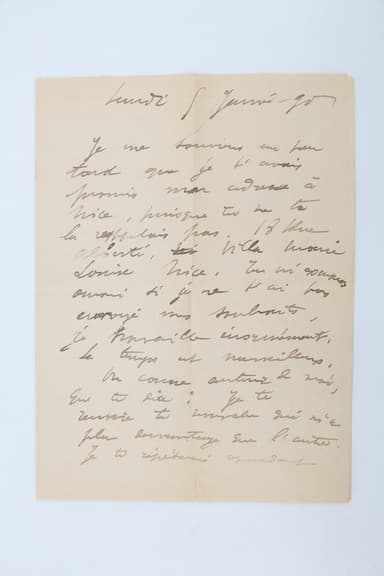 Lundi 5 Janvier - 90
Je me souviens un peu
tard que je t'avais
promis mon adresse à
Nice, puisque tu ne te
la rappelais pas. 18 Rue
Alberti, Villa Marie
Louise Nice. Tu m'excuses
aussi si je ne t'ai pas
envoyé mes souhaits,
je travaille énormément.
Le temps est merveilleux,
On cause autour de moi,
que te dire? Je te
plus davantage que l'autre.
Je te répéterai cependant